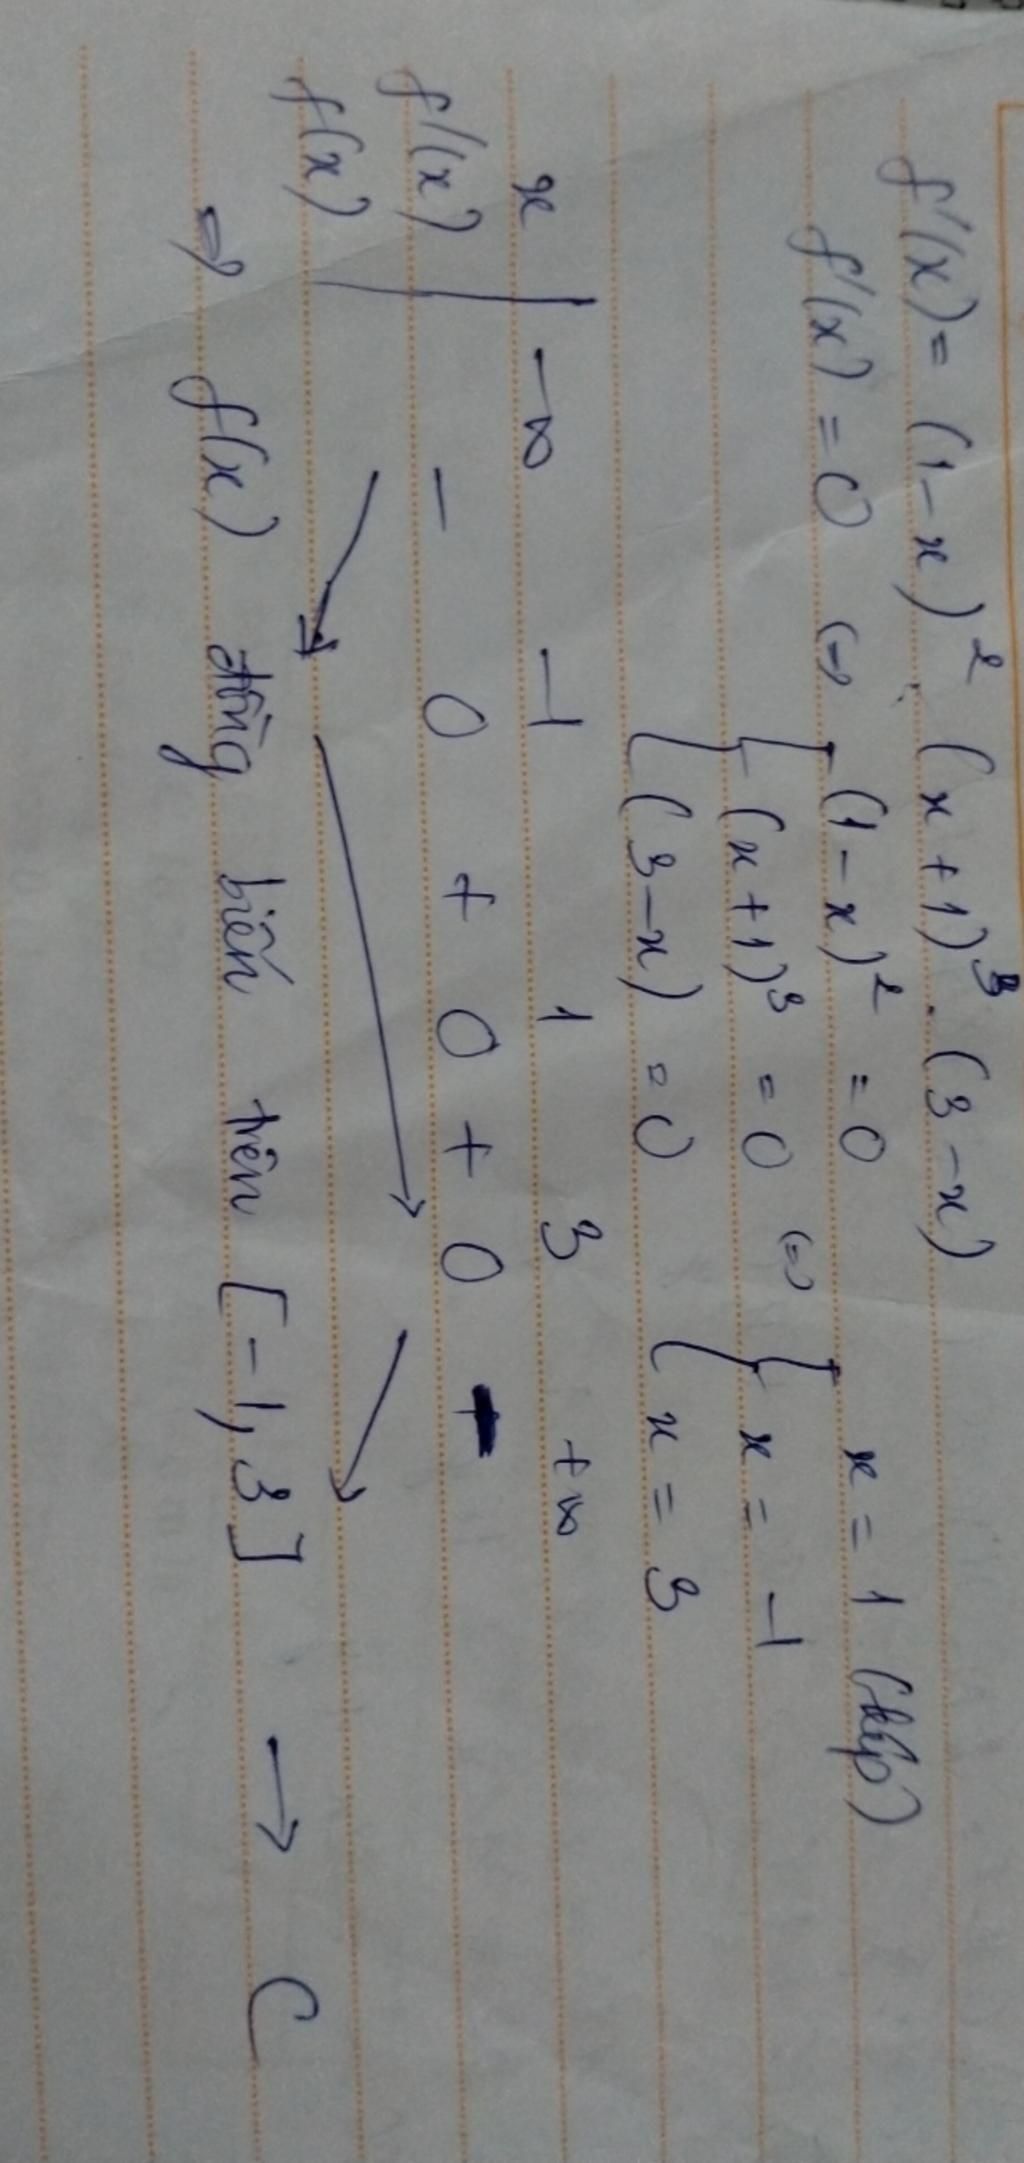 f'(x) = (1-x)². (x+1)³. (3-x)
f'(x) = 0 (=) [ (1-x)² = 0
(x+1)³ = 0 (=) [ x = 1 (kép)
(3-x) = 0
x = -1
x = 3
x | -∞ -1 1 3 +∞
f'(x) | - 0 + 0 + 0 -
f(x) | ↘ ↗ ↘
=> f(x) đồng biến trên [-1, 3] → C